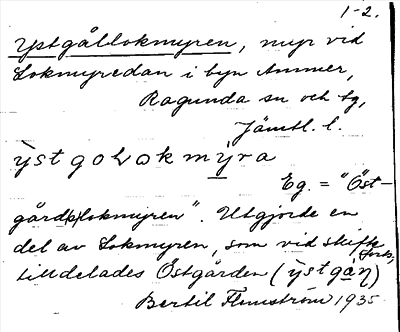 1-2.
Ystgållokmyren, myr vid
Lokmyredan i byn Ammer,
Ragunda sn och tg,
Jämtl. l.
ỳstgoloḱmỳra
Eg. = "Öst-
gård(s)lokmyren". Utgjorde en
del av Lokmyren, som vid skifte
tilldelades Östgården (ỳstgaη)
Bertil Flemström 1935